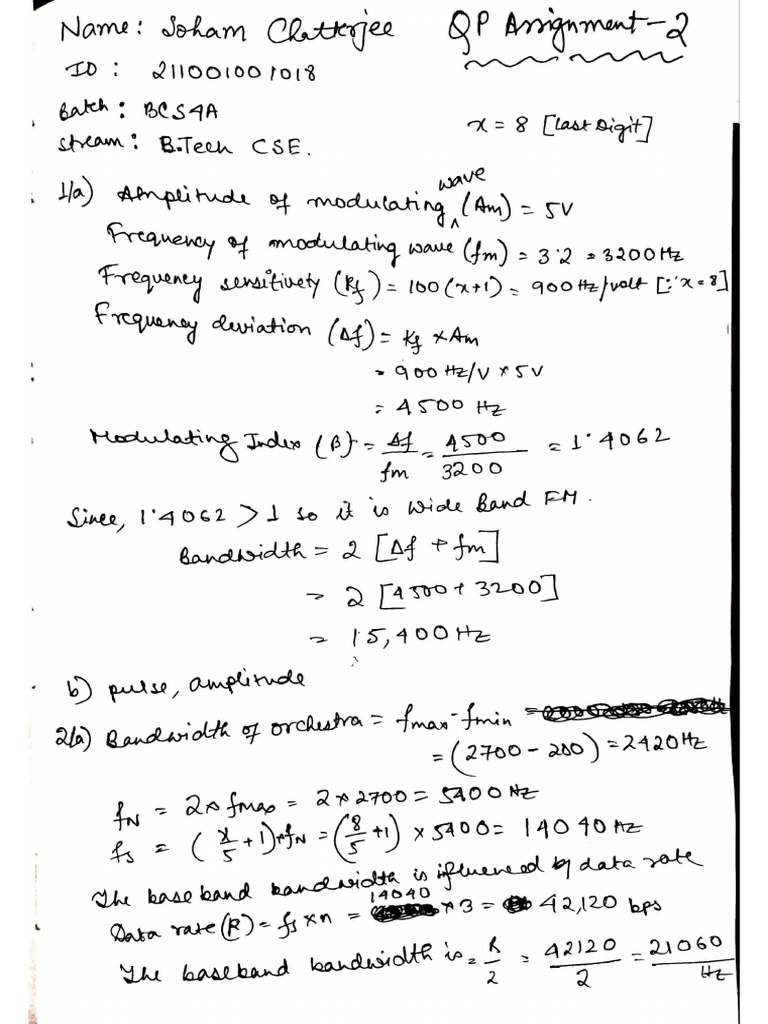 Name: Soham Chatterjee QP Assignment-2
ID : 211001001018
Batch : BCS4A
x = 8 [Last Digit]
Stream : B.Tech CSE.
1/a) Amplitude of modulating wave (Am) = 5V
Frequency of modulating wave (fm) = 3.2 = 3200 Hz
Frequency sensitivety (Kf) = 100(x+1) = 900 Hz/volt [∵ x = 8]
Frequency deviation (Δf) = Kf × Am
= 900 Hz/V × 5V
= 4500 Hz
Modulating Index (β) = Δf/fm = 4500/3200 = 1.4062
Since, 1.4062 > 1 so it is Wide Band FM.
Bandwidth = 2 [Δf + fm]
= 2 [4500 + 3200]
= 15,400 Hz
b) pulse, amplitude
2/a) Bandwidth of orchestra = fmax - fmin =
= (2700 - 280) = 2420 Hz
fN = 2 × fmax = 2 × 2700 = 5400 Hz
fs = (x/5 + 1) × fN = (8/5 + 1) × 5400 = 14040 Hz
The base band bandwidth is influenced by data rate
Data rate (R) = fs × n = 14040 × 3 = 42,120 bps
The baseband bandwidth is = R/2 = 42120/2 = 21060 Hz